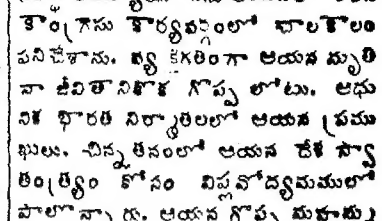 కాంగ్రెసు కార్యవర్గంలో చాలకాలం
పనిచేశాను. వ్యక్తిగతంగా ఆయన మృతి
నా జీవితానికొక గొప్ప లోటు. ఆధు
నిక భారత నిర్మాతలలో ఆయన ప్రము
ఖులు. చిన్నతనంలో ఆయన దేశ స్వా
తంత్ర్యం కోసం విప్లవోద్యమములో
పాల్గొన్నారు. ఆయన గొప్ప